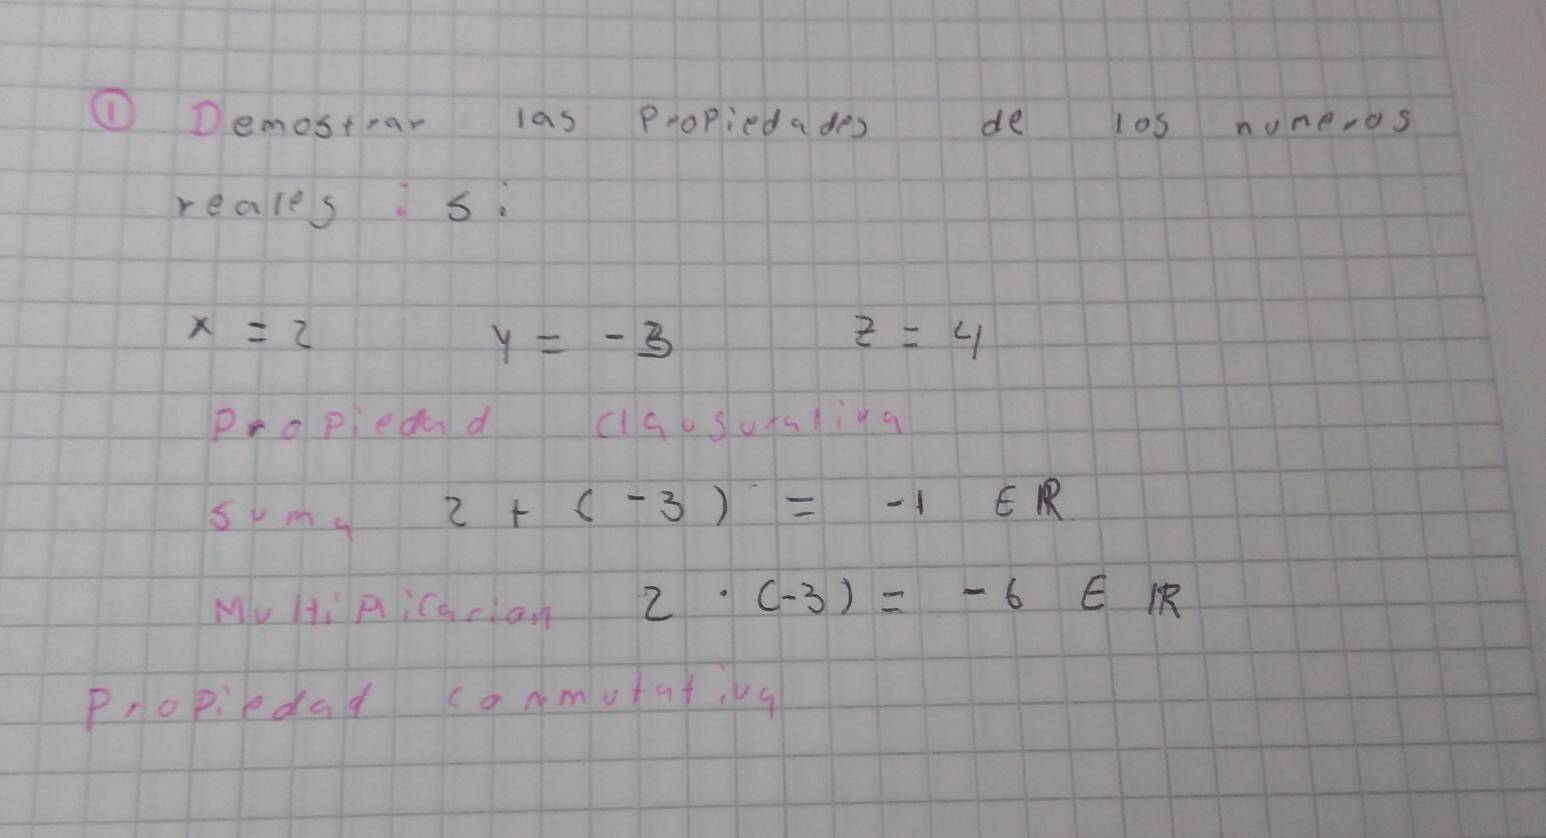 ① Demostrar las Propiedades de los numeros
reales : si
x = 2 y = -3 z = 4
Propiedad clausurativa
suma 2 + (-3) = -1 ∈ ℝ
Multiplicacion 2 · (-3) = -6 ∈ ℝ
Propiedad conmutativa